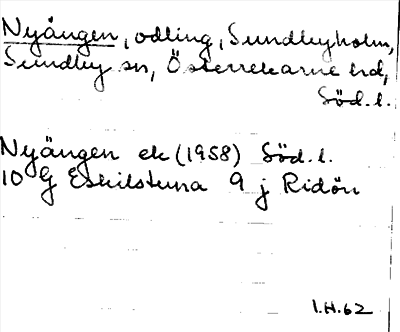 Nyängen, odling, Sundbyholm,
Sundby sn, Österrekarne hd,
Söd. l.
Nyängen ek (1958) Söd. l.
10 G Eskilstuna 9 j Ridön
I.H.62